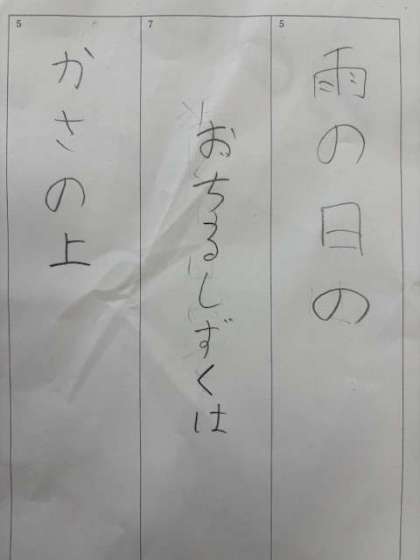 5
雨の日の
7
おちるしずくは
5
かさの上